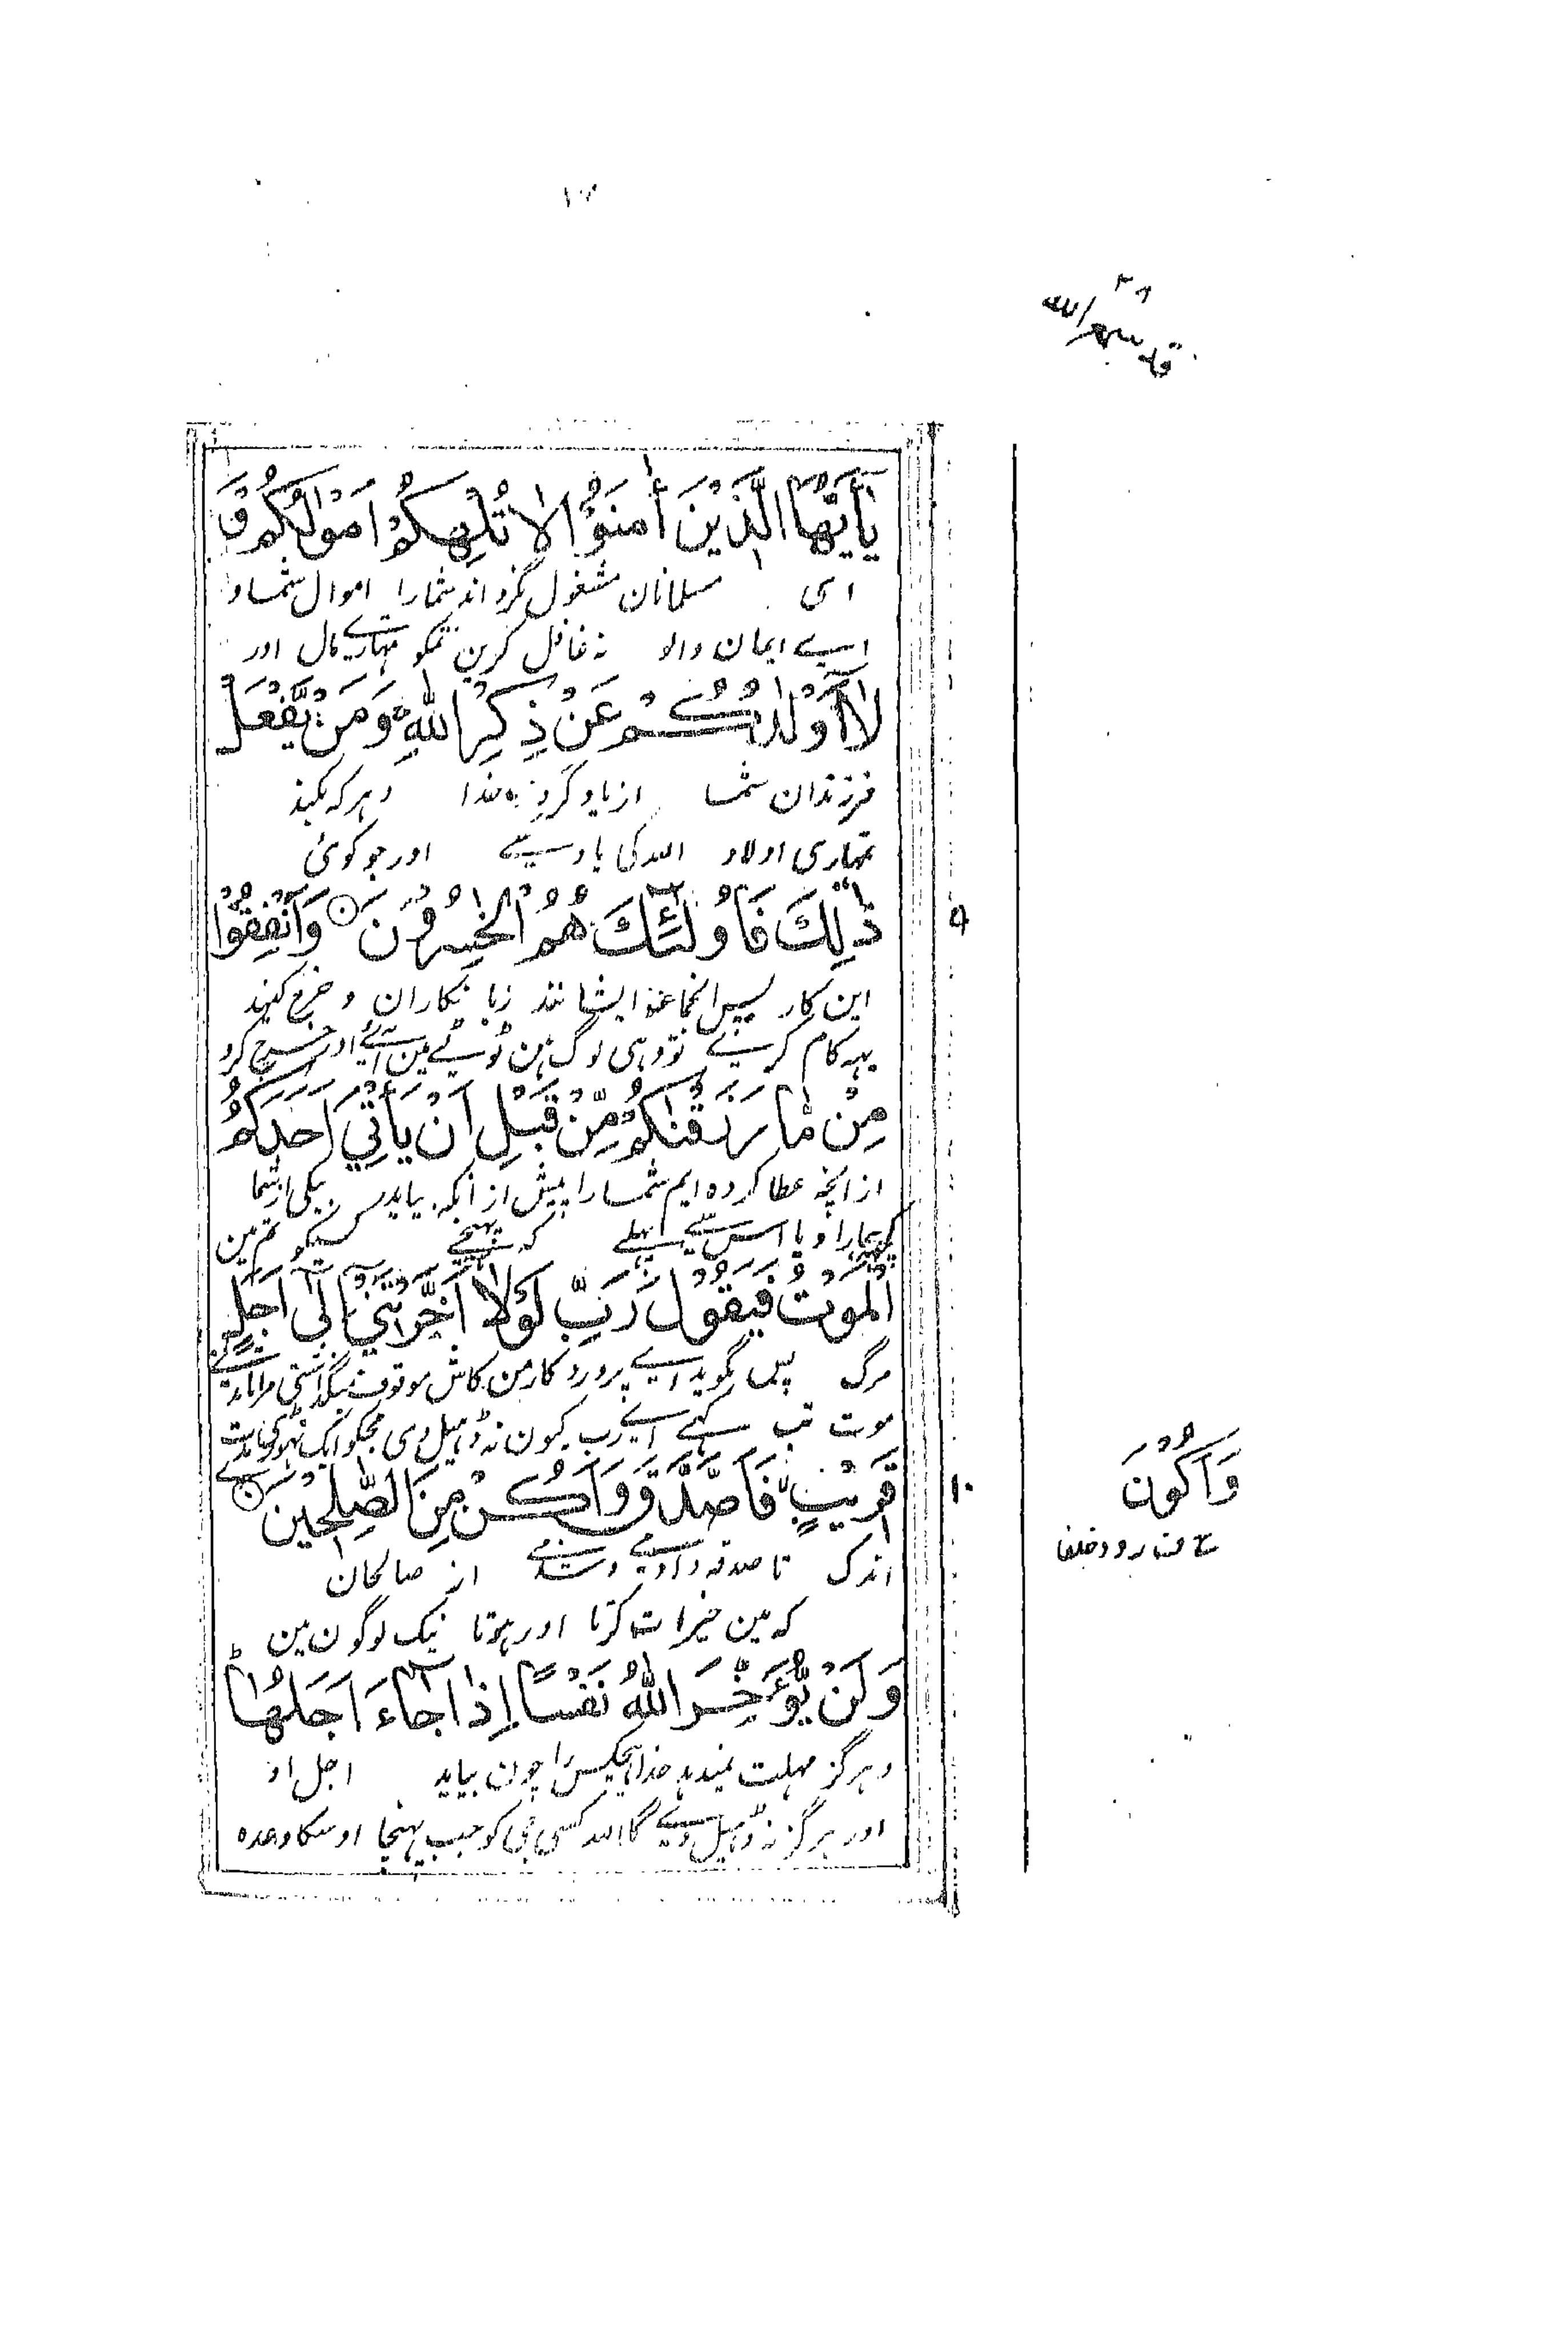 قد سمع الله ٢٨
يٰۤاَيُّهَا الَّذِيْنَ اٰمَنُوْا لَا تُلْهِكُمْ اَمْوَالُكُمْ وَ
ای مسلمانان مشغول نگرداند شمارا اموال شما و
اے ایمان والو نہ غافل کرین تمکو تمہارے مال اور
لَاۤ اَوْلَادُكُمْ عَنْ ذِكْرِ اللّٰهِ وَمَنْ يَّفْعَلْ
فرزندان شما از یاد کردن خدا و ہر کہ بکند
تمہاری اولاد اللہ کی یاد سے اور جو کوئی
ذٰلِكَ فَاُولٰٓئِكَ هُمُ الْخٰسِرُوْنَ وَاَنْفِقُوْا
٩
این کار پس انجماعۃ ایشانند زیانکاران و خرچ کنید
یہہ کام کرے تو وہی لوگ ہین ٹوٹے مین آئے اور خرچ کرو
مِنْ مَّا رَزَقْنٰكُمْ مِّنْ قَبْلِ اَنْ يَّاْتِيَ اَحَدَكُمُ
از انچہ عطا کردہ ایم شمارا پیش از انکہ بیاید بیکی از شما
کچہہ ہمارا دیا اس سے پہلے کہ پہنچے کسیکو تم مین
الْمَوْتُ فَيَقُوْلَ رَبِّ لَوْلَاۤ اَخَّرْتَنِيْۤ اِلٰۤى اَجَلٍ
مرگ پس بگوید اے پروردکار من کاش موقوف بگذاشتی مرا تا مدتے
موت تب کہے اے رب کیون نہ ڈہیل دی مجکو ایک تہوڑی مدت
قَرِيْبٍ فَاَصَّدَّقَ وَاَكُنْ مِّنَ الصّٰلِحِيْنَ
١٠
وَاَكُوْنَ
اندک تا صدقہ دادمے و شدمے از صالحان
کہ مین خیرات کرتا اور ہوتا نیک لوگون مین
وَلَنْ يُّؤَخِّرَ اللّٰهُ نَفْسًا اِذَا جَآءَ اَجَلُهَا ط
و ہرگز مہلت نمیدہد خدا ہیچکس را چون بیاید اجل او
اور ہرگز نہ ڈہیل دیے گا اللہ کسی جی کو جب پہنچا اوسکا وعدہ